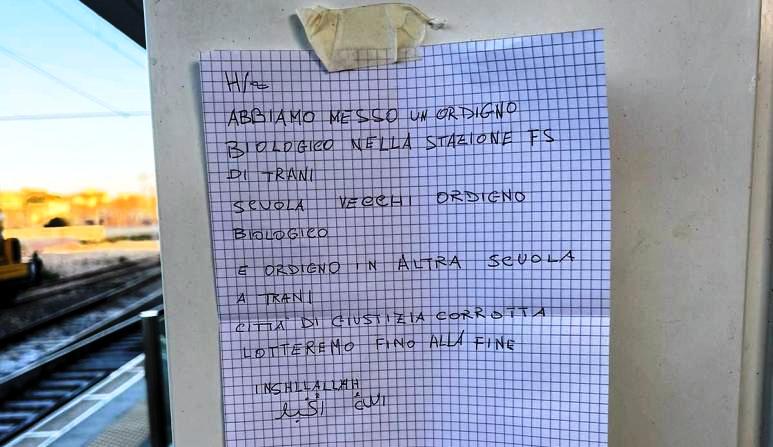 H/∞
ABBIAMO MESSO UN ORDIGNO
BIOLOGICO NELLA STAZIONE FS
DI TRANI
SCUOLA VECCHI ORDIGNO
BIOLOGICO
E ORDIGNO IN ALTRA SCUOLA
A TRANI
CITTÀ DI GIUSTIZIA CORROTTA
LOTTEREMO FINO ALLA FINE
INSHLLALLAH
الله اكبر